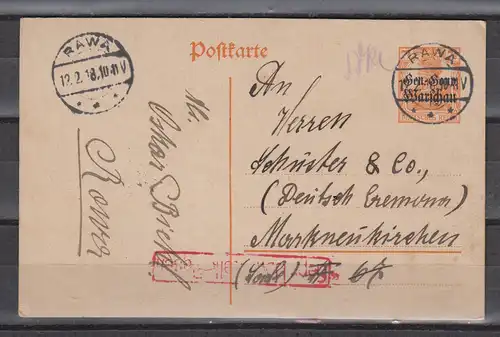 RAWA
12.2.18.10-11V
Postkarte
RAWA
Gen.-Gouv.
Warschau
An
Herren
Schuster & Co.,
(Deutsch Cremona)
Markneukirchen
Oskar
Rawa